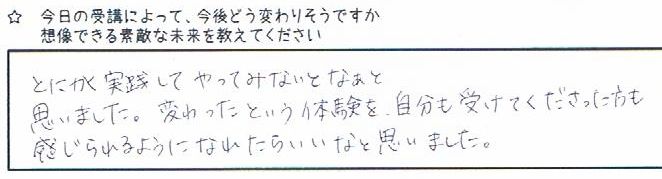 ☆ 今日の受講によって、今後どう変わりそうですか
想像できる素敵な未来を教えてください
とにかく実践してやってみないとなぁと
思いました。変わったという体験を、自分も受けてくださった方も
感じられるようになれたらいいなと思いました。